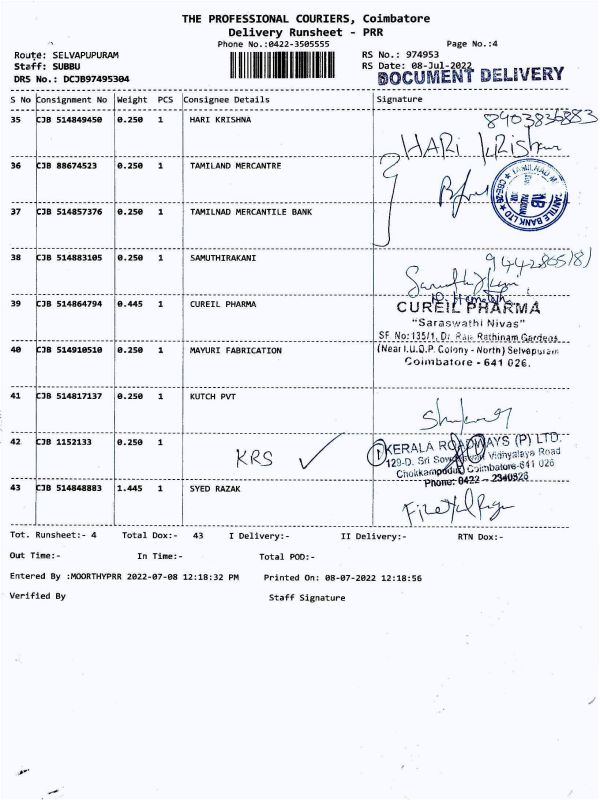 THE PROFESSIONAL COURIERS, Coimbatore
Delivery Runsheet - PRR
Phone No.:0422-3505555 Page No.:4
Route: SELVAPUPURAM RS No.: 974953
Staff: SUBBU RS Date: 08-Jul-2022
DRS No.: DCJB97495304 DOCUMENT DELIVERY
S No Consignment No Weight PCS Consignee Details Signature
35 CJB 514849450 0.250 1 HARI KRISHNA 8903836883
HARI KRISHNA
36 CJB 88674523 0.250 1 TAMILAND MERCANTRE
37 CJB 514857376 0.250 1 TAMILNAD MERCANTILE BANK
38 CJB 514883105 0.250 1 SAMUTHIRAKANI
39 CJB 514864794 0.445 1 CUREIL PHARMA CUREIL PHARMA
"Saraswathi Nivas"
SF. No: 135/1, Dr. Raja Rathinam Gardens,
40 CJB 514910510 0.250 1 MAYURI FABRICATION (Near I.U.D.P. Colony - North) Selvapuram
Coimbatore - 641 026.
41 CJB 514817137 0.250 1 KUTCH PVT
42 CJB 1152133 0.250 1 KRS KERALA ROADWAYS (P) LTD.
129-D, Sri Vidhyalaya Road
Chokkampudur, Coimbatore-641 026
Phone: 0422 - 2340826
43 CJB 514848883 1.445 1 SYED RAZAK
Tot. Runsheet:- 4 Total Dox:- 43 I Delivery:- II Delivery:- RTN Dox:-
Out Time:- In Time:- Total POD:-
Entered By :MOORTHYPRR 2022-07-08 12:18:32 PM Printed On: 08-07-2022 12:18:56
Verified By Staff Signature